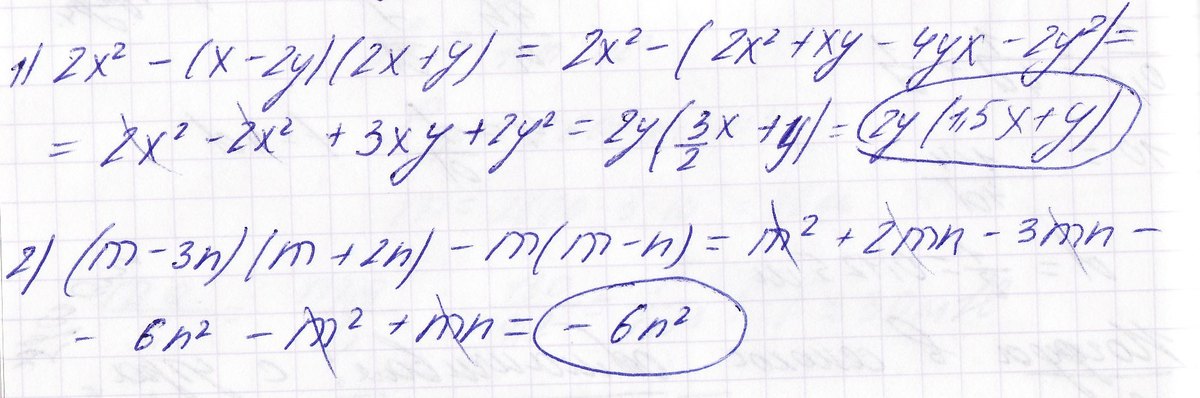 1) 2x² - (x - 2y)(2x + y) = 2x² - (2x² + xy - 4yx - 2y²) =
= 2x² - 2x² + 3xy + 2y² = 2y(3/2 x + y) = 2y(1,5x + y)
2) (m - 3n)(m + 2n) - m(m - n) = m² + 2mn - 3mn -
- 6n² - m² + mn = - 6n²